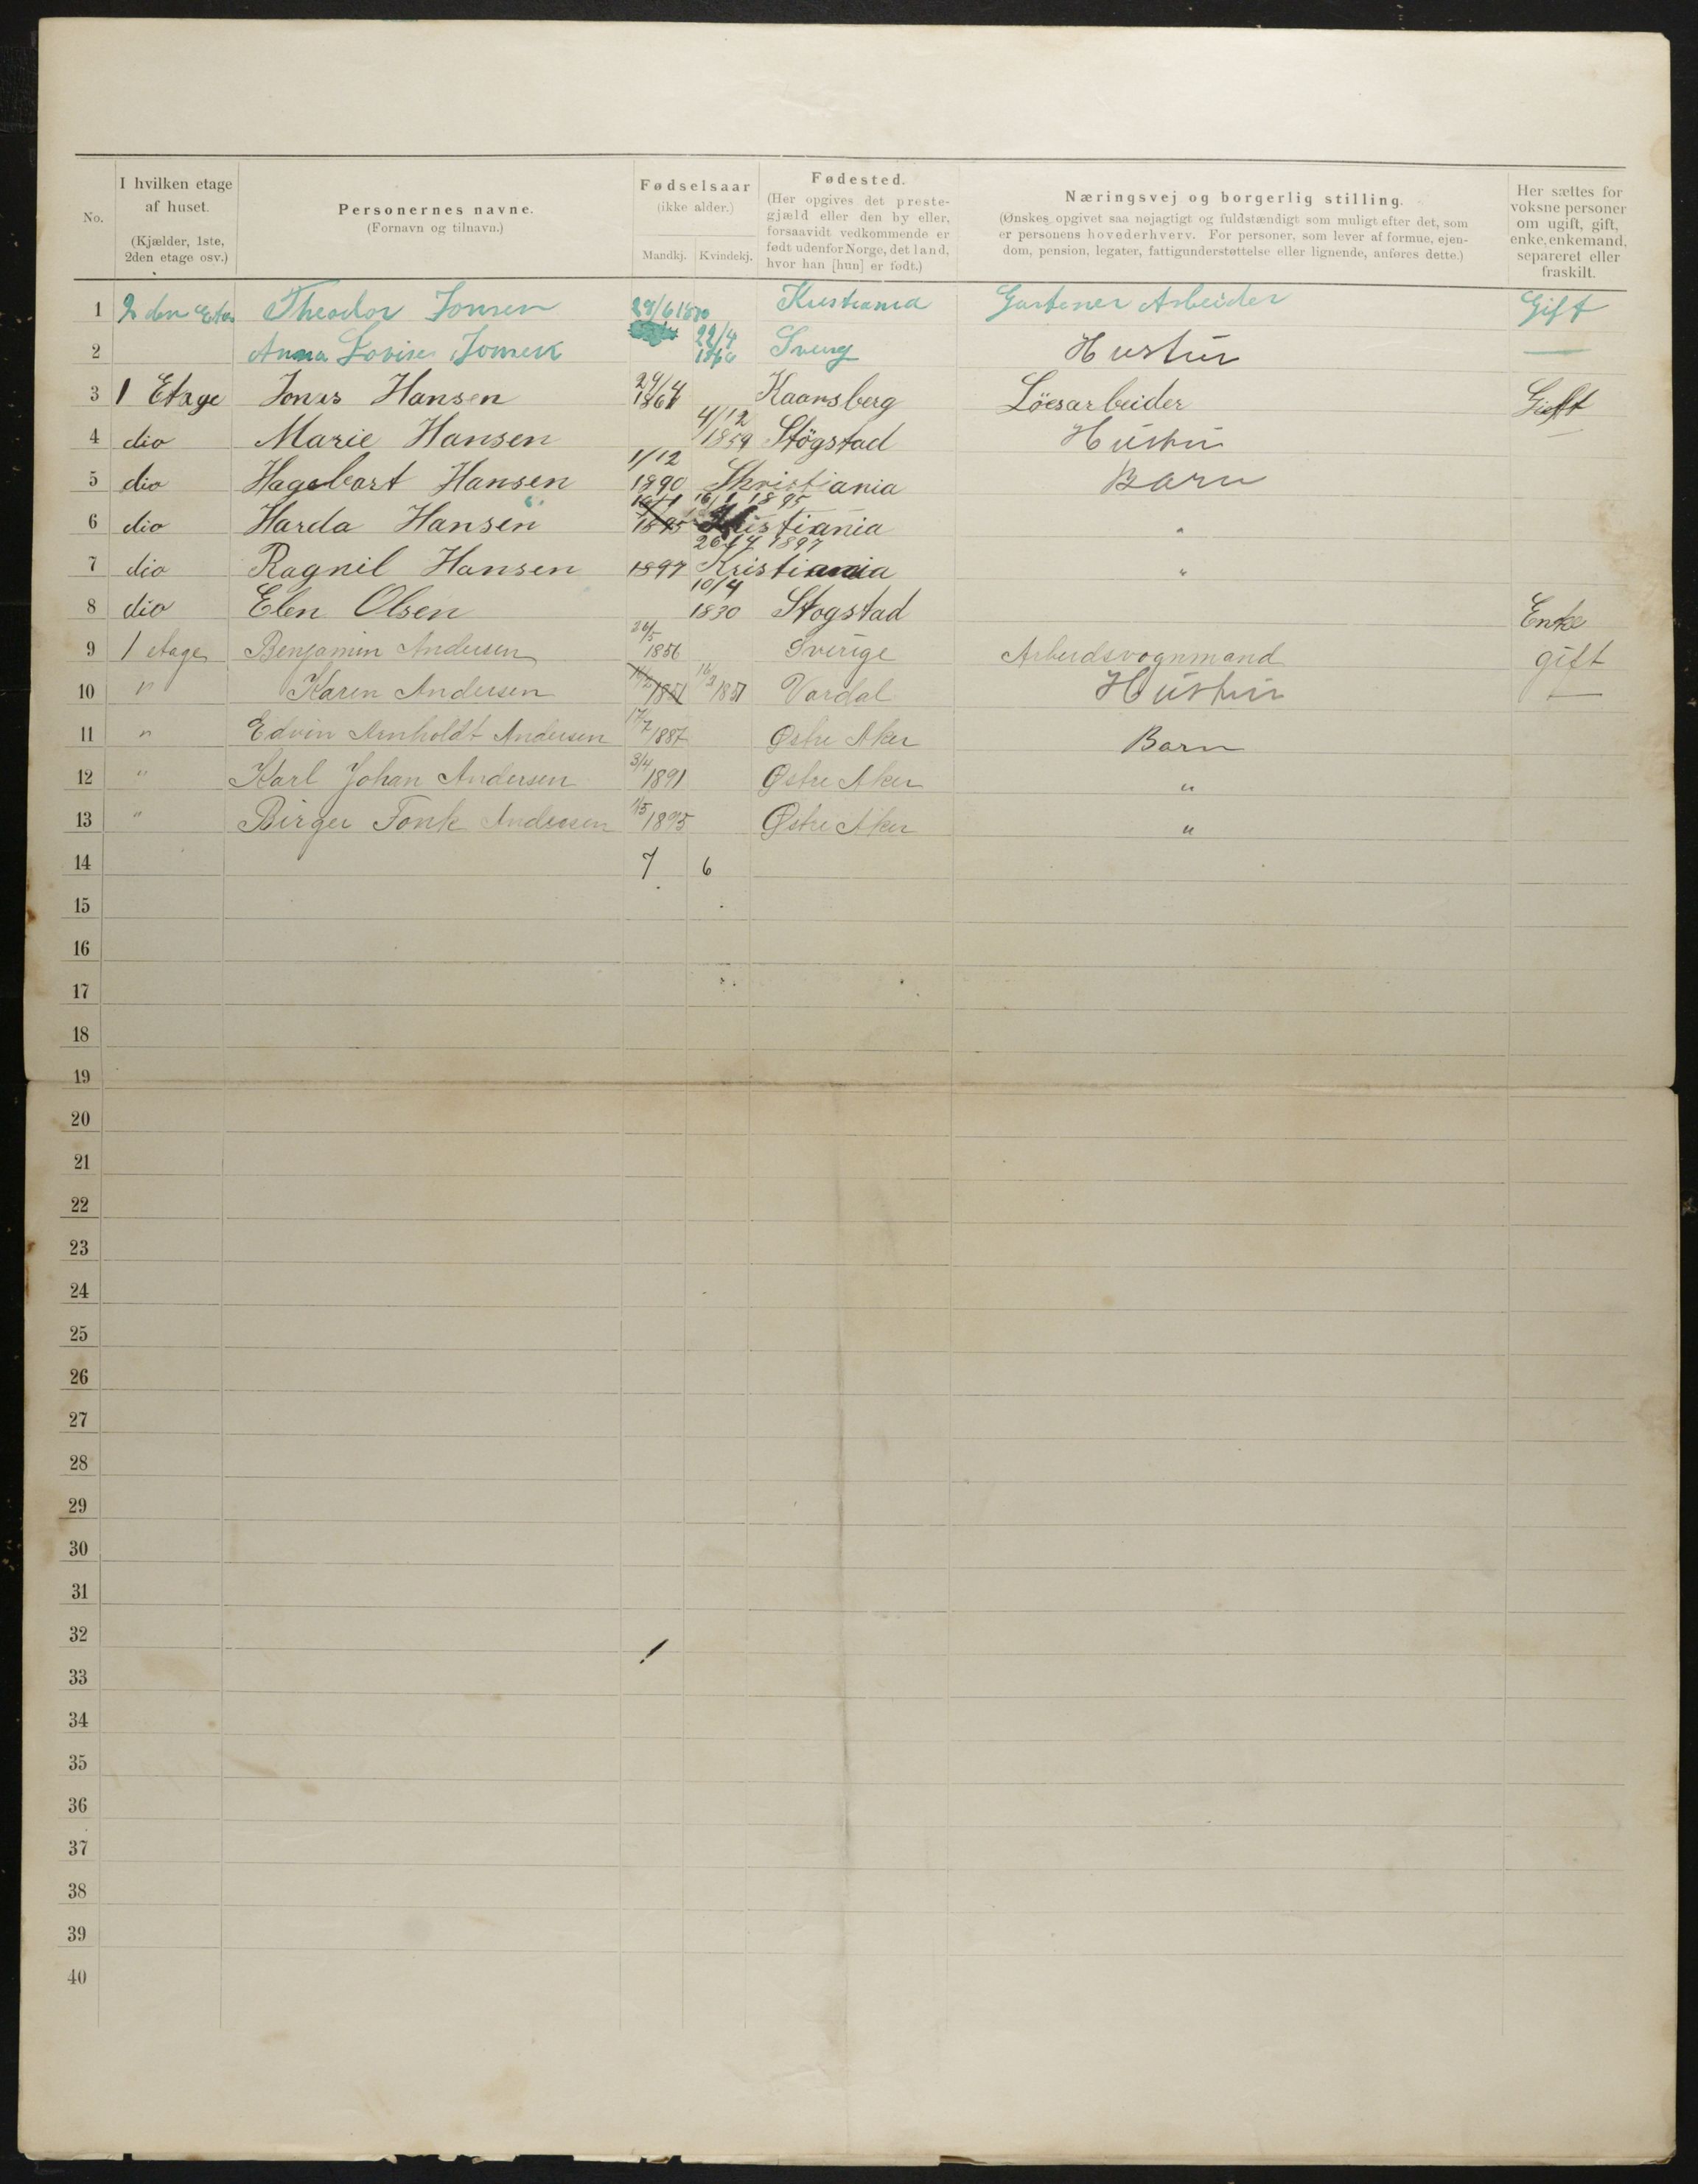 No.
I hvilken etage
af huset.
(Kjælder, 1ste,
2den etage osv.)
Personernes navne.
(Fornavn og tilnavn.)
Fødselsaar
(ikke alder.)
Mandkj. Kvindekj.
Fødested.
(Her opgives det preste-
gjæld eller den by eller,
forsaavidt vedkommende er
født udenfor Norge, det land,
hvor han [hun] er født.)
Næringsvej og borgerlig stilling.
(Ønskes opgivet saa nøjagtigt og fuldstændigt som muligt efter det, som
er personens hovederhverv. For personer, som lever af formue, ejen-
dom, pension, legater, fattigunderstøttelse eller lignende, anføres dette.)
Her sættes for
voksne personer
om ugift, gift,
enke, enkemand,
separeret eller
fraskilt.
1 2 den Theodor Jonsen 29/6 1870 Kristiania Gartener Arbeider Gift
2 Anna Lovise Jonsen 22/4 Sverig Hustru —
3 1 Etage Jonas Hansen 29/4 1861 Kaansberg Löesarbeider Gift
4 dio Marie Hansen 4/12 1859 Stögstad Hustru —
5 dio Hagebart Hansen 1/12 1890 Christiania Barn
6 dio Harda Hansen 1895 16/1 1895 Kristiania "
7 dio Ragnil Hansen 1897 26/7 1897 Kristiania "
8 dio Elen Olsen 10/4 1830 Stogstad Enke
9 1 etage Benjamin Andersen 26/5 1856 Sverige Arbeidsvognmand gift
10 " Karen Andersen 1851 16/2 1851 Vardal Hustru —
11 " Edvin Arnholdt Andersen 17/7 1887 Østre Aker Barn
12 " Karl Johan Andersen 3/4 1891 Østre Aker "
13 " Birger Fonk Andersen 1/5 1895 Østre Aker "
14 7 6
15
16
17
18
19
20
21
22
23
24
25
26
27
28
29
30
31
32
33
34
35
36
37
38
39
40